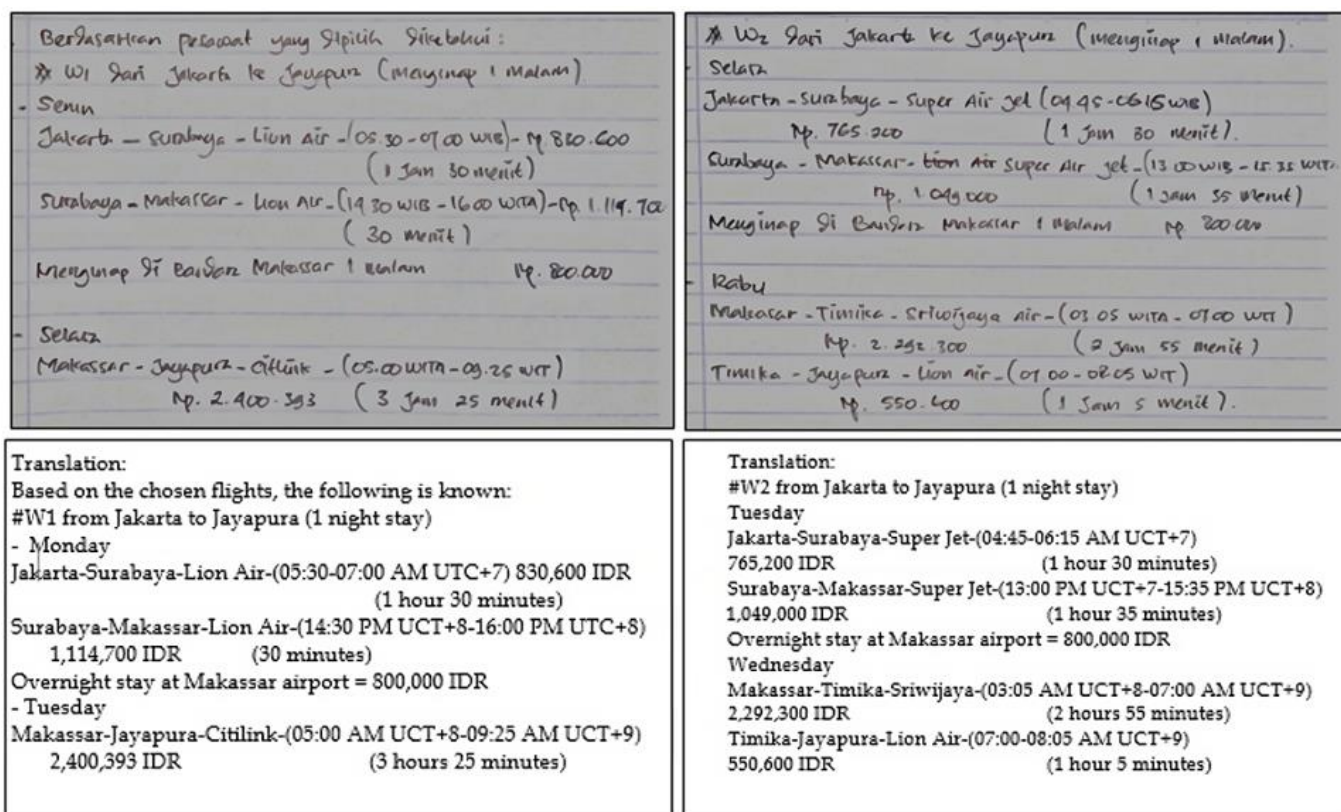 Berdasarkan pesawat yang dipilih diketahui:
* W1 dari Jakarta ke Jayapura (Menginap 1 Malam)
- Senin
Jakarta - Surabaya - Lion Air - (05.30 - 07.00 WIB) - Rp 830.600
(1 Jam 30 menit)
Surabaya - Makassar - Lion Air - (14 30 WIB - 16 00 WITA) - Rp. 1.114.700
( 30 menit )
Menginap di Bandara Makassar 1 malam Rp. 800.000
- Selasa
Makassar - Jayapura - Citilink - (05.00 WITA - 09.25 WIT)
Rp. 2.400.393 ( 3 Jam 25 menit)
* W2 dari Jakarta ke Jayapura (menginap 1 malam).
- Selasa
Jakarta - Surabaya - Super Air Jet (04.45 - 06.15 WIB)
Rp. 765.200 ( 1 Jam 30 menit).
Surabaya - Makassar - Super Air Jet - (13 00 WIB - 15.35 WITA
Rp. 1.049.000 ( 1 Jam 35 menit)
Menginap di Bandara Makassar 1 malam Rp. 800.000
- Rabu
Makassar - Timika - Sriwijaya Air - (03 05 WITA - 07 00 WIT)
Rp. 2.292.300 ( 2 Jam 55 menit )
Timika - Jayapura - Lion Air - (07 00 - 08 05 WIT)
Rp. 550.600 ( 1 Jam 5 menit ).
Translation:
Based on the chosen flights, the following is known:
#W1 from Jakarta to Jayapura (1 night stay)
- Monday
Jakarta-Surabaya-Lion Air-(05:30-07:00 AM UTC+7) 830,600 IDR
(1 hour 30 minutes)
Surabaya-Makassar-Lion Air-(14:30 PM UCT+8-16:00 PM UTC+8)
1,114,700 IDR (30 minutes)
Overnight stay at Makassar airport = 800,000 IDR
- Tuesday
Makassar-Jayapura-Citilink-(05:00 AM UCT+8-09:25 AM UCT+9)
2,400,393 IDR (3 hours 25 minutes)
Translation:
#W2 from Jakarta to Jayapura (1 night stay)
Tuesday
Jakarta-Surabaya-Super Jet-(04:45-06:15 AM UCT+7)
765,200 IDR (1 hour 30 minutes)
Surabaya-Makassar-Super Jet-(13:00 PM UCT+7-15:35 PM UCT+8)
1,049,000 IDR (1 hour 35 minutes)
Overnight stay at Makassar airport = 800,000 IDR
Wednesday
Makassar-Timika-Sriwijaya-(03:05 AM UCT+8-07:00 AM UCT+9)
2,292,300 IDR (2 hours 55 minutes)
Timika-Jayapura-Lion Air-(07:00-08:05 AM UCT+9)
550,600 IDR (1 hour 5 minutes)